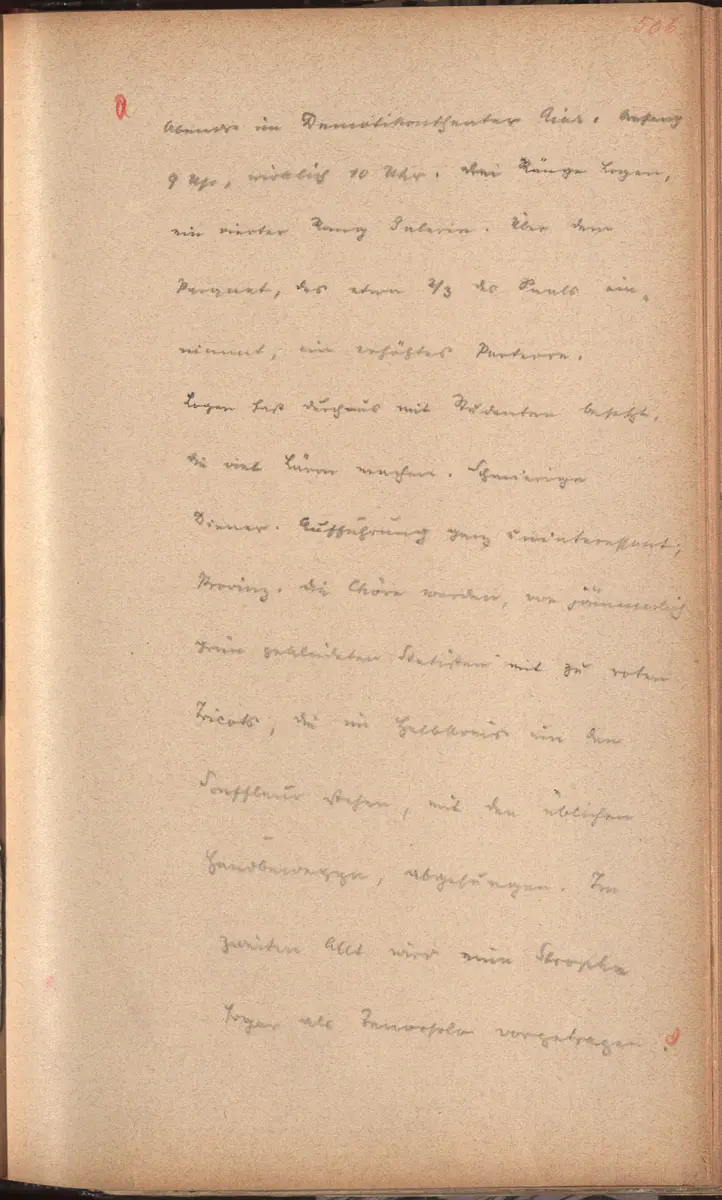 506
Abends im Demotikontheater Aias. Anfang
9 Uhr, wirklich 10 Uhr. Drei Ränge Logen,
ein vierter Rang Galerie. Über dem
Parquet, das etwa 2/3 des Saals ein-
nimmt, ein erhöhtes Parterre.
Logen fast durchaus mit Studenten besetzt,
die viel Lärm machen. Schmierige
Diener. Aufführung ganz uninteressant;
Provinz. Die Chöre werden, von jämmerlich
grün gekleideten Statisten mit zu roten
Tricots, die im Halbkreis um den
Souffleur stehen, mit den üblichen
Handbeweggn, abgesungen. Im
zweiten Akt wird eine Strophe
sogar als Tenorsolo vorgetragen.